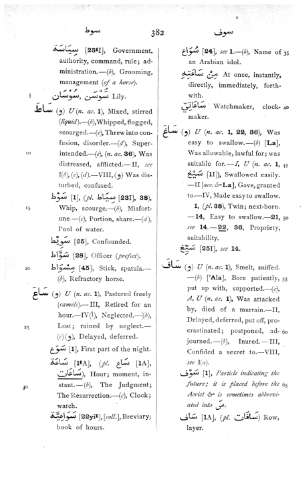 سوط
382
سوف
سِيَاسَةٌ [23I], Government,
authority, command, rule; ad-
ministration.—(b), Grooming,
management (of a horse).
سَوْسَن, سُوسَان Lily.
سَاطَ (و) U (n. ac. 1), Mixed, stirred
(liquid).—(b), Whipped, flogged,
scourged.—(c), Threw into con-
fusion, disorder.—(d), Super-
intended.—(e), (n. ac. 36), Was
distressed, afflicted.—II, see
I(b), (c), (d).—VIII, (و) Was dis-
turbed, confused.
سَوْط [1], (pl. سِيَاط [23I], 38),
Whip, scourge.—(b), Misfort-
une.—(c), Portion, share.—(d),
Pool of water.
سَوِيط [25], Confounded.
سَوَّاط [28], Officer (prefect).
مِسْوَاط [45], Stick, spatula.—
(b), Refractory horse.
سَاعَ (و) U (n. ac. 1), Pastured freely
(camels).—III, Retired for an
hour.—IV(I), Neglected.—(b),
Lost; ruined by neglect.—
(c) (و), Delayed, deferred.
سَوْع [1], First part of the night.
سَاعَة [1ªA], (pl. سَاع [1A],
سَاعَات), Hour; moment, in-
stant.—(b), The Judgment;
The Resurrection.—(c), Clock;
watch.
سَوَاعِيَّة [22yiª], [coll.], Breviary;
book of hours.
سُوَاع [24], see 1.—(b), Name of
an Arabian idol.
مِنْ سَاعَتِهِ At once, instantly,
directly, immediately, forth-
with.
سَاعَاتِي Watchmaker, clock-
maker.
سَاغَ (و) U (n. ac. 1, 22, 36), Was
easy to swallow.—(b) [La],
Was allowable, lawful for; was
suitable for.—I, U (n. ac. 1,
[1I]), Swallowed easily.
—II [acc. d-La], Gave, granted
to—IV, Made easy to swallow.
سَوْغ 1, (pl. 38), Twin; next-born.
—14, Easy to swallow.—21,
see 14.—22, 36, Propriety,
suitability.
سَيِّغ [25I], see 14.
سَافَ (و) U (n. ac. 1), Smelt, sniffed.
—(b) ['Ala], Bore patiently,
put up with, supported.—(c),
A, U (n. ac. 1), Was attacked
by, died of a murrain.—II,
Delayed, deferred, put off, pro-
crastinated; postponed, ad-
journed.—(b), Inured.—III,
Confided a secret to.—VIII,
see I(a).
سَوْفَ [1], Particle indicating the
future; it is placed before the
Aorist & is sometimes abbrevi-
ated into سَ.
سَاف [1A], (pl. سَافَات), Row,
layer.